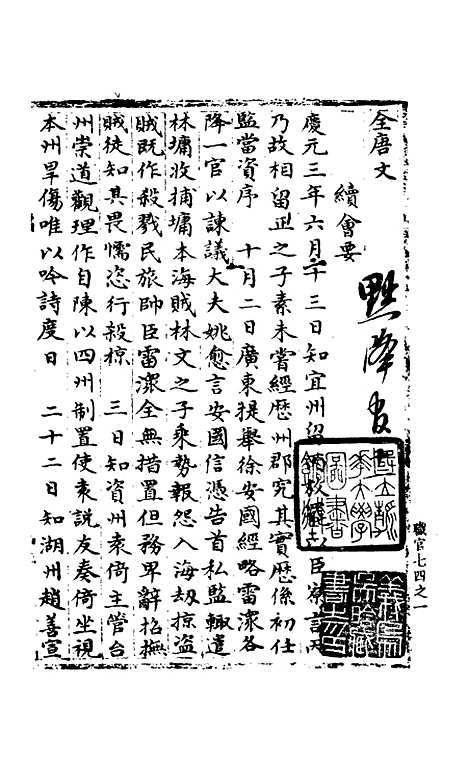 全唐文
續會要
黜降官
慶元三年六月二十三日知宜州留
臣寮言丙
乃故相留正之子素未嘗經歷州郡究其實歷係初任
監當資序　十月二日廣東提舉徐安國經略雷潨各
降一官以諫議大夫姚愈言安國信憑告首私監輒遣
林墉收捕墉本海賊林文之子乘勢報怨入海刼掠盜
賊既作殺戮民旅帥臣雷潨全無措置但務卑辭招撫
賊徒知其畏懦恣行殺掠　三日知資州袁倚主管台
州崇道觀理作自陳以四州制置使袁説友奏倚坐視
本州旱傷唯以吟詩度日　二十二日知湖州趙善宣
職官七四之一
國立浙江大學圖書